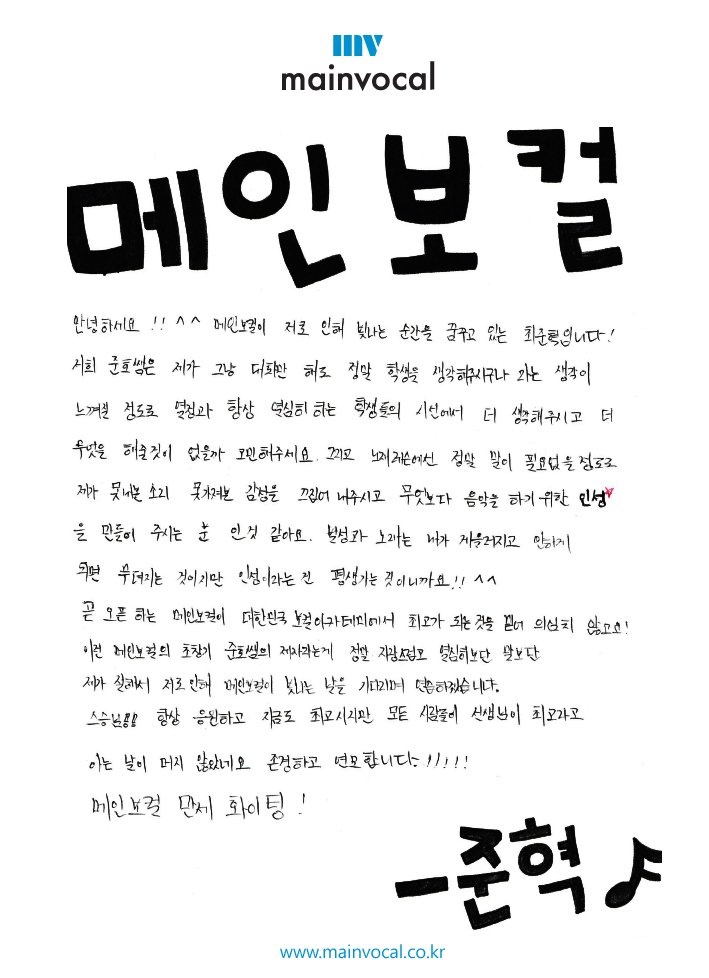 mv
mainvocal
메인보컬
안녕하세요 !! ^^ 메인보컬이 저로 인해 빛나는 순간을 꿈꾸고 있는 최준혁입니다!
저희 준호쌤은 제가 그냥 대화만 해도 정말 학생을 생각해주시구나 라는 생각이
느껴질 정도로 열정과 항상 열심히 하는 학생들의 시선에서 더 생각해주시고 더
무엇을 해줄것이 없을까 고민해주세요. 그리고 노래레슨에선 정말 말이 필요없을정도로
제가 못내본 소리 못가져본 감정을 끄집어 내주시고 무엇보다 음악을 하기 위한 인성
을 만들어 주시는 분 인것 같아요. 발성과 노래는 내가 게을러지고 안하게
되면 무뎌지는 것이지만 인성이라는건 평생가는것이니까요!! ^^
곧 오픈 하는 메인보컬이 대한민국 보컬아카데미에서 최고가 되는것을 믿어 의심치 않고요!
이런 메인보컬의 초창기 준호쌤의 제자라는게 정말 자랑스럽고 열심히보단 잘보단
제가 잘해서 저로인해 메인보컬이 빛나는 날을 기다리며 연습하겠습니다.
스승님!!! 항상 응원하고 지금도 최고시지만 모든 사람들이 선생님이 최고라고
아는 날이 머지 않았네요 존경하고 연모합니다~!!!!!
메인보컬 만세 화이팅 !
-준혁♪
www.mainvocal.co.kr